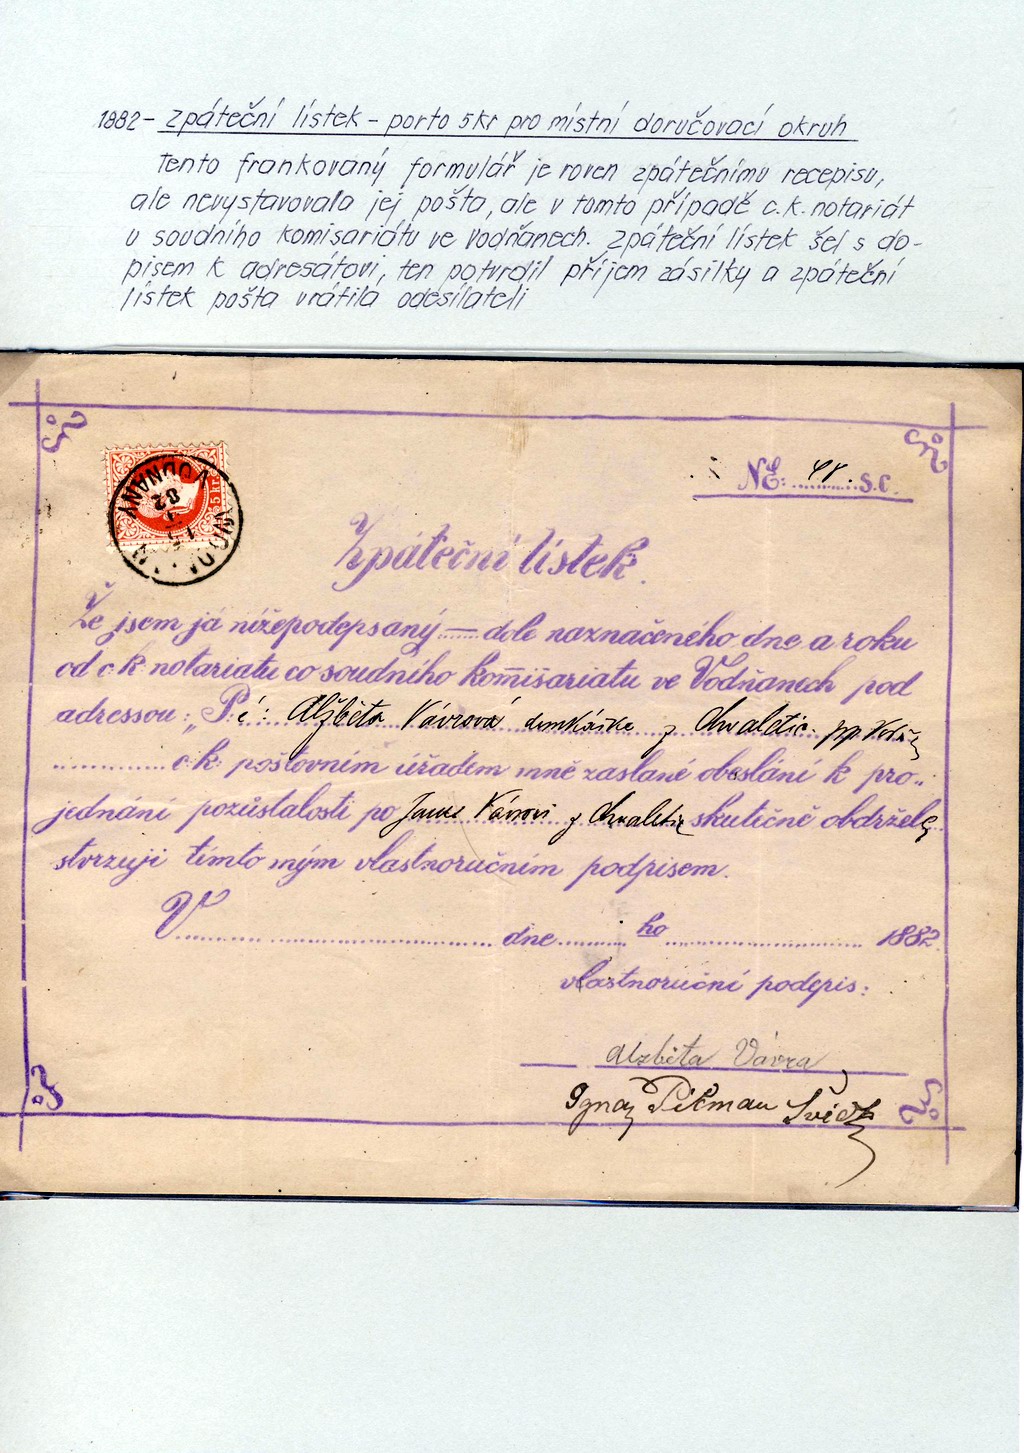 1882 - zpáteční lístek - porto 5kr pro místní doručovací okruh
Tento frankovaný formulář je roven zpátečnímu recepisu,
ale nevystavovala jej pošta, ale v tomto případě c.k. notariát
u soudního komisariátu ve Vodňanech. Zpáteční lístek šel s do-
pisem k adresátovi, ten potvrdil příjem zásilky a zpáteční
lístek pošta vrátila odesílateli
5 kr.
VODŇANY
82
NE: 48. S.C.
Zpáteční lístek.
Že jsem já nížepodepsaný — dole naznačeného dne a roku
od c. k. notariatu co soudního komisariatu ve Vodňanech pod
adressou: „P. Alžběta Vávrová domkářka z Chvaletic
c. k. poštovním úřadem mně zaslané obeslání k pro-
jednání pozůstalosti po Vávrovi z Chvaletic skutečně obdržel
stvrzuji tímto mým vlastnoručním podpisem.
V dne ho 1882.
vlastnoruční podpis:
Alzběta Vávra
Ignaz Pikman